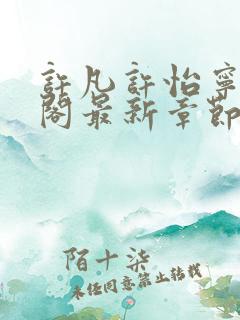 許凡許怡寧
閣最新章節
陌十柒
未經同意禁止轉載